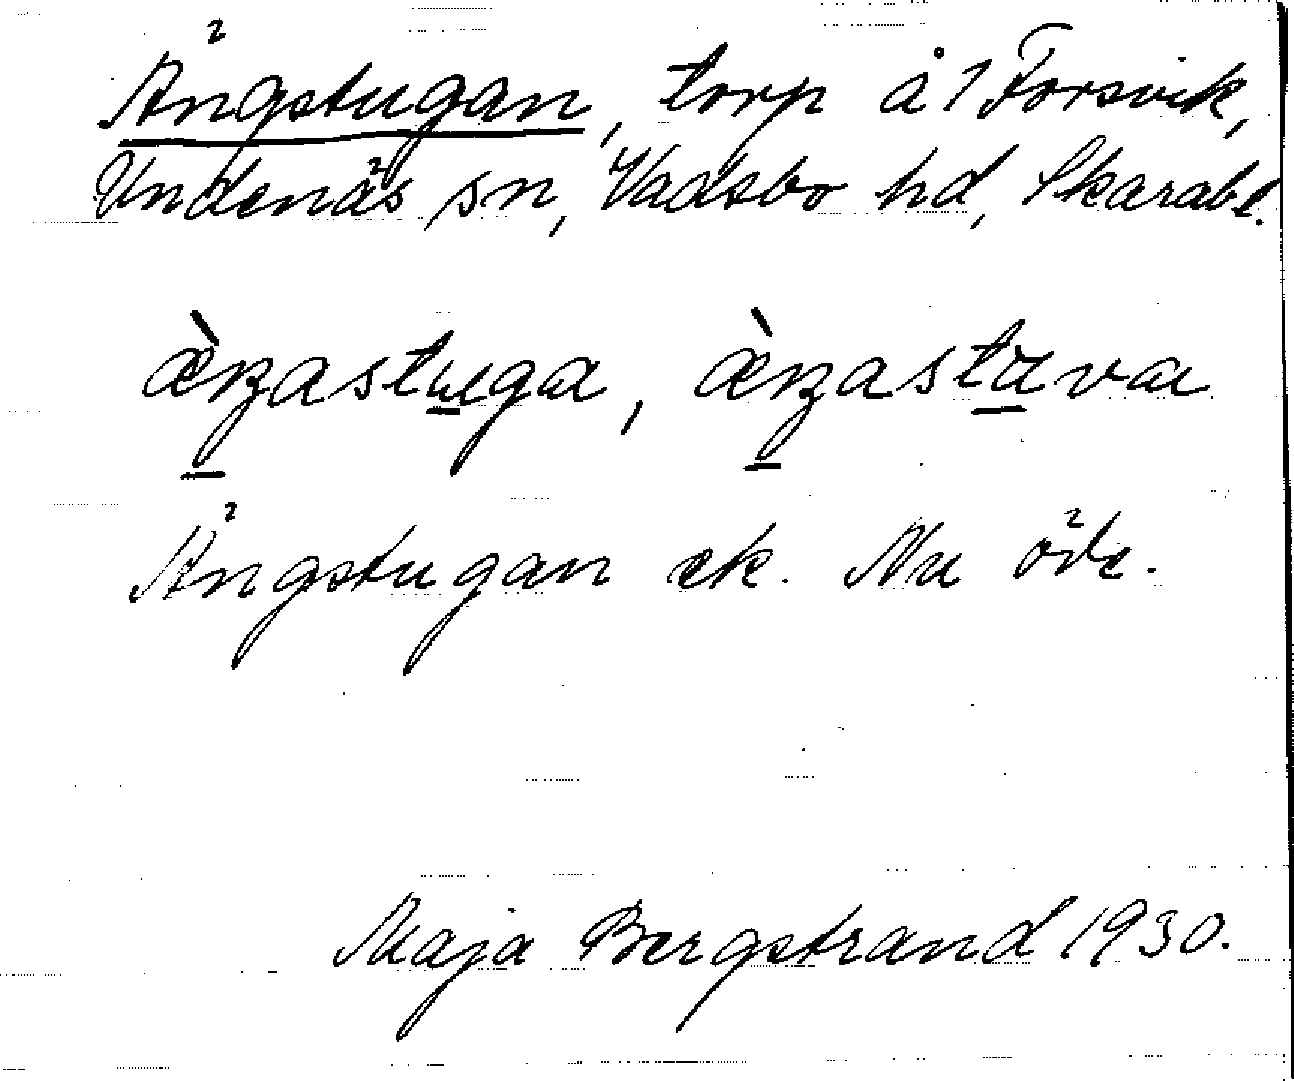 Ängstugan, torp å 1 Forsvik,
Undenäs sn, Vadsbo hd, Skarabl.
æ̀ŋastuga, æ̀ŋastuva
Ängstugan ek. Nu öde.
Maja Bergstrand 1930.